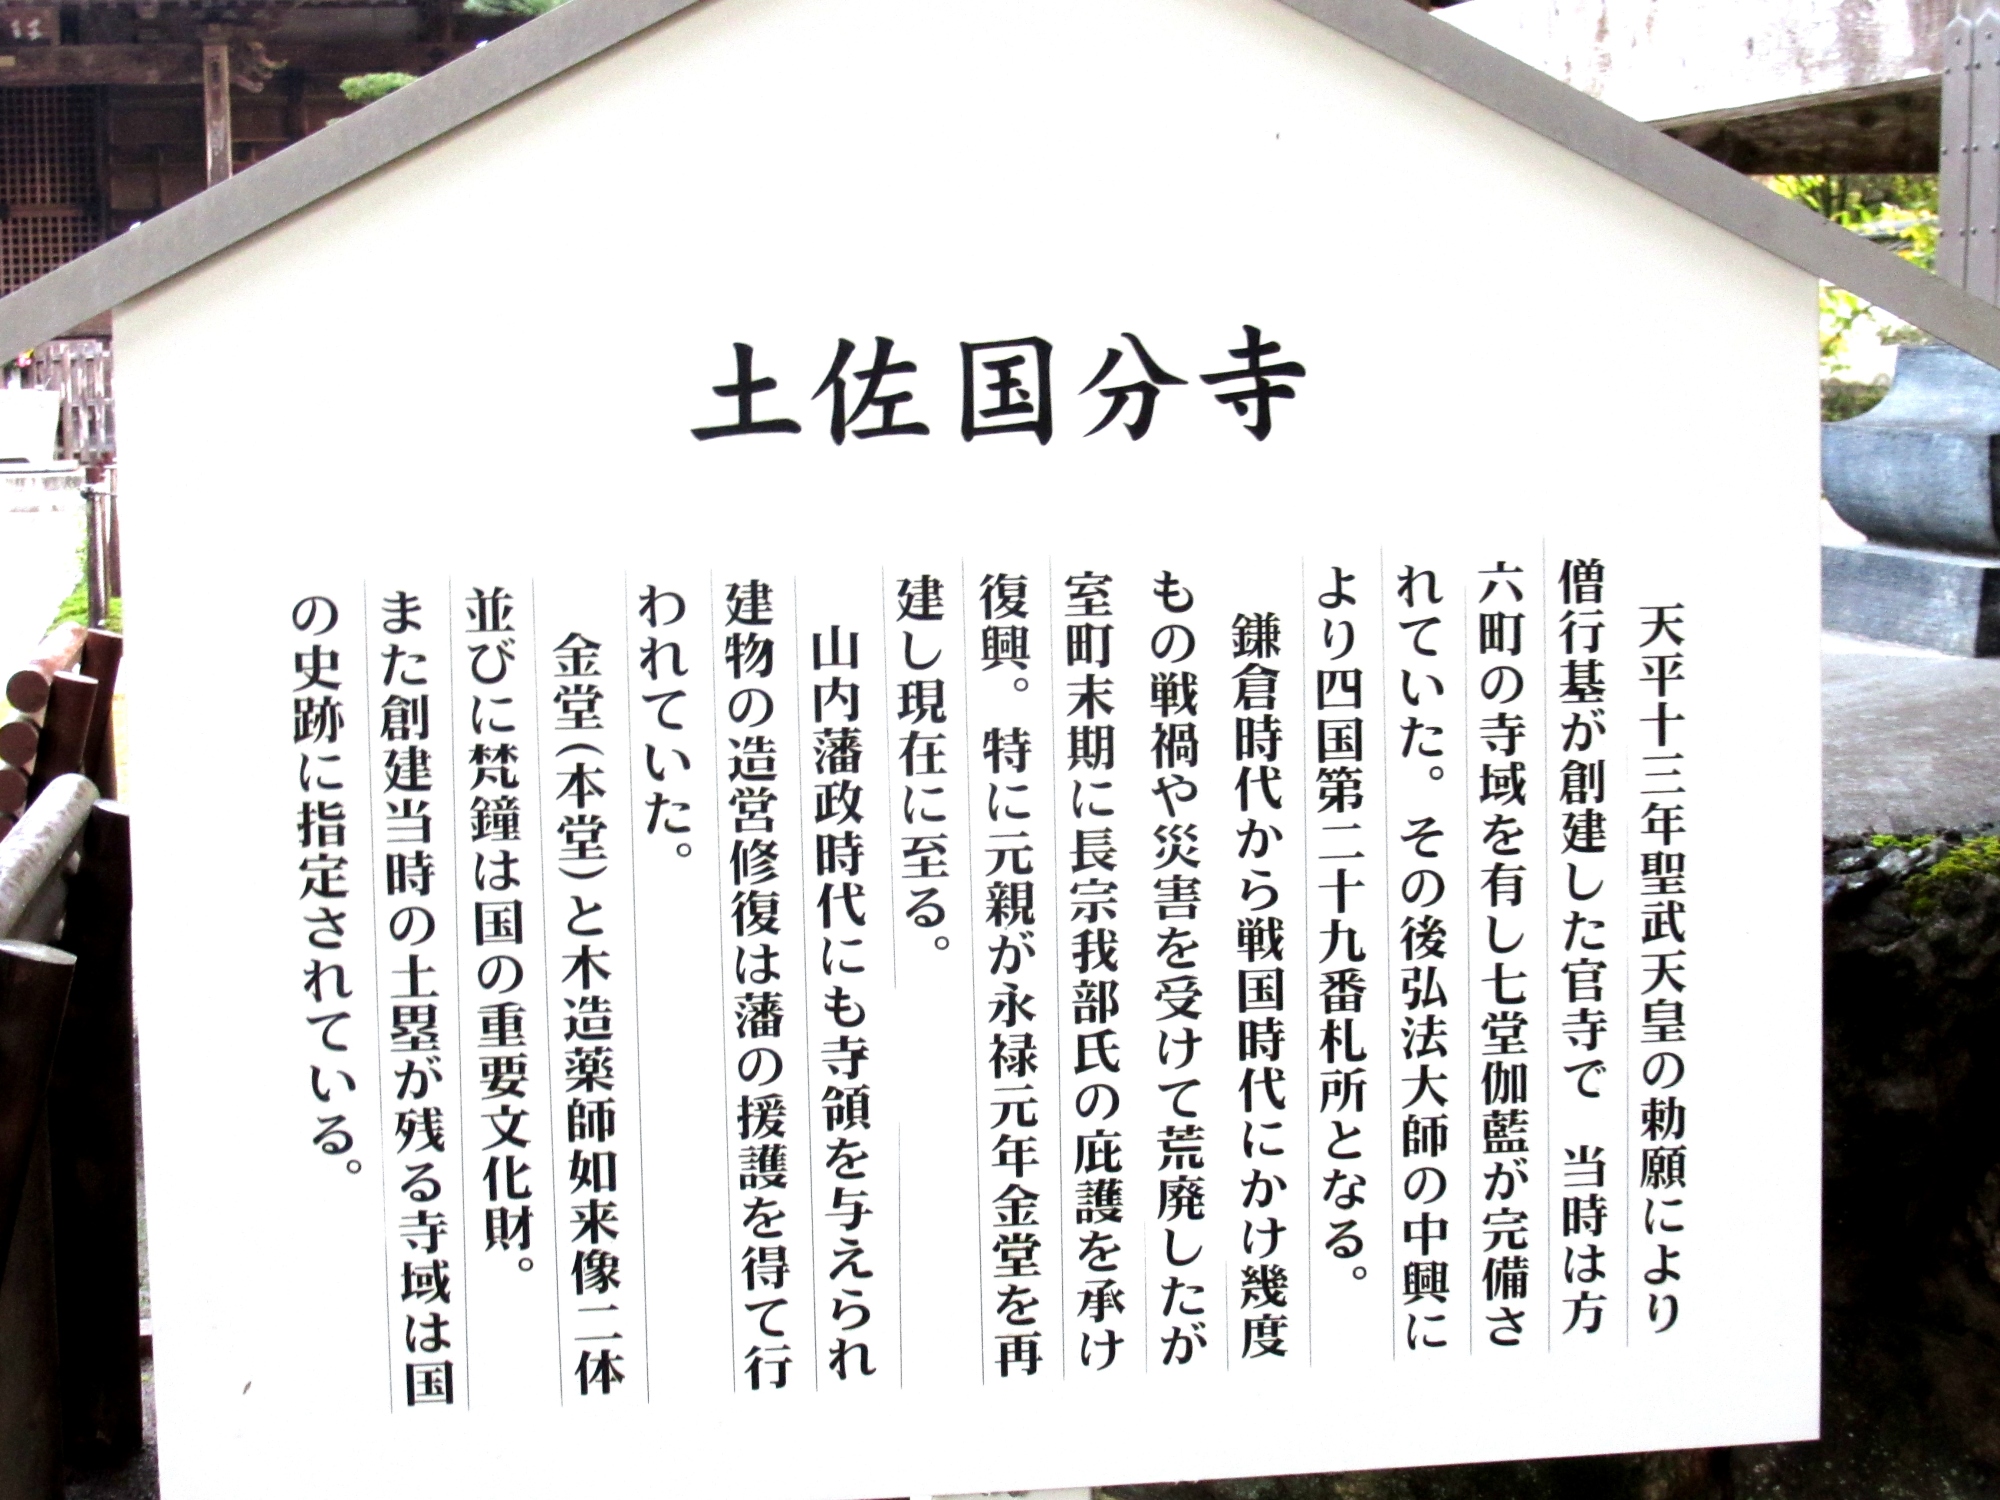 土佐国分寺
天平十三年聖武天皇の勅願により
僧行基が創建した官寺で　当時は方
六町の寺域を有し七堂伽藍が完備さ
れていた。その後弘法大師の中興に
より四国第二十九番札所となる。
鎌倉時代から戦国時代にかけ幾度
もの戦禍や災害を受けて荒廃したが
室町末期に長宗我部氏の庇護を承け
復興。特に元親が永禄元年金堂を再
建し現在に至る。
山内藩政時代にも寺領を与えられ
建物の造営修復は藩の援護を得て行
われていた。
金堂(本堂)と木造薬師如来像二体
並びに梵鐘は国の重要文化財。
また創建当時の土塁が残る寺域は国
の史跡に指定されている。